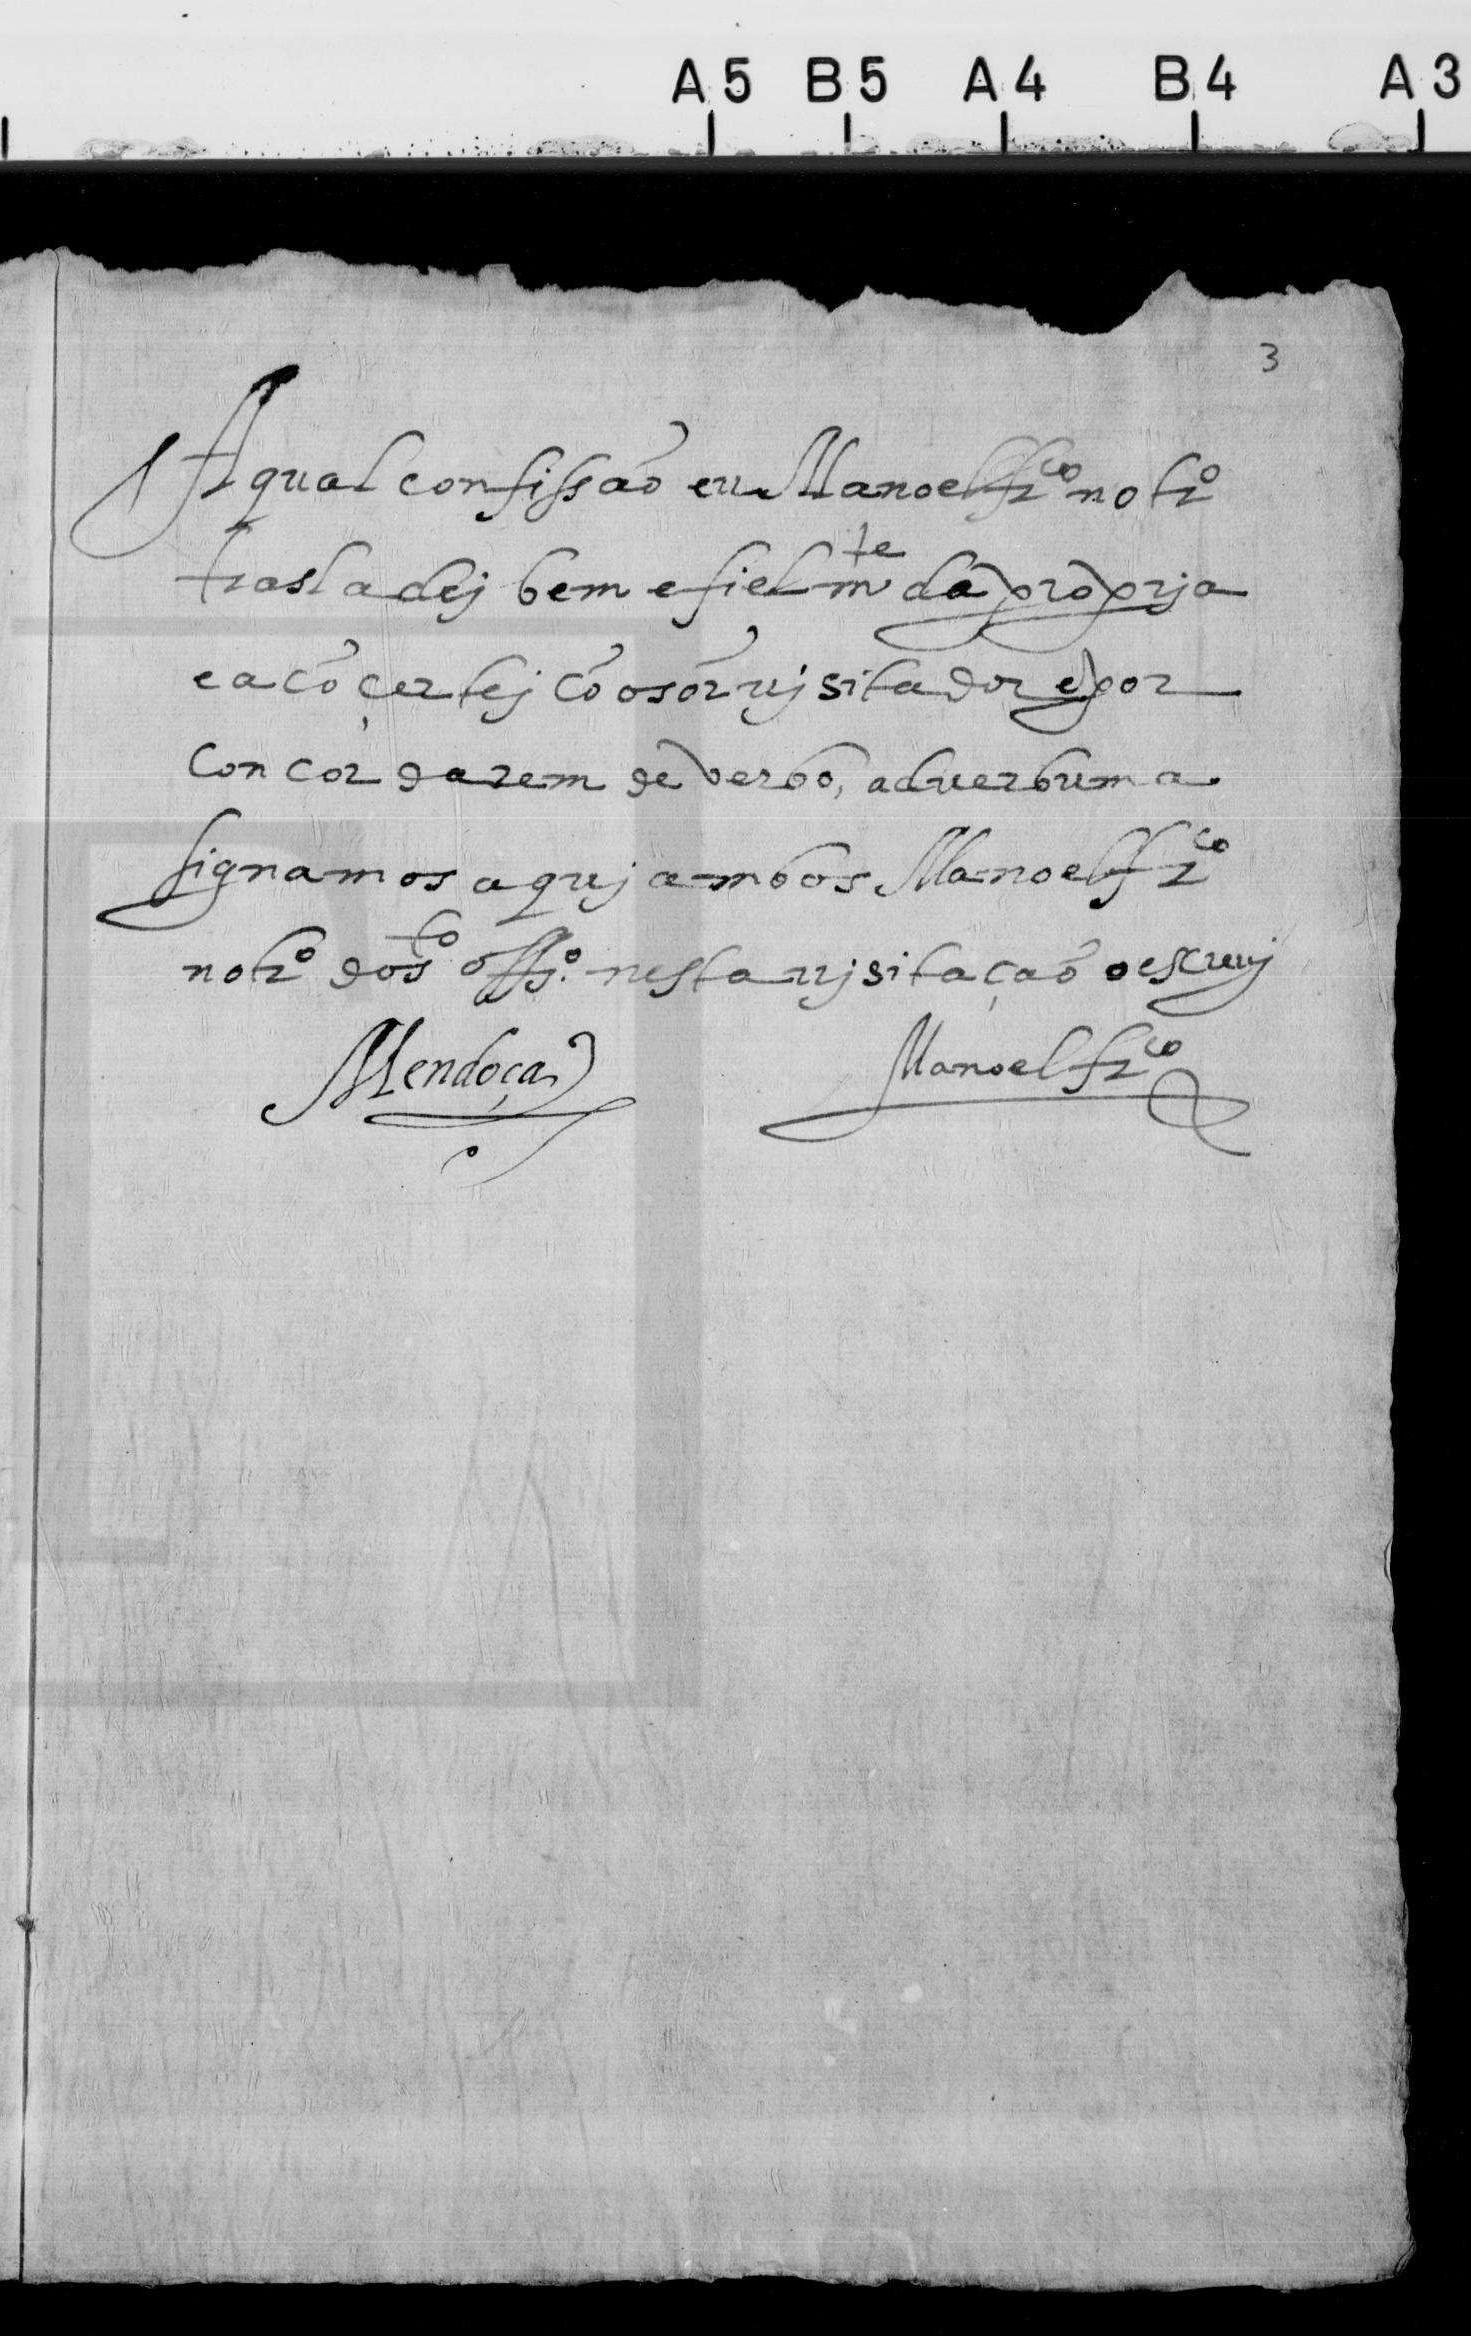 A5 B5 A4 B4 A3
3
A qual confissaõ eu Manoel frco notro
trasladej bem e fielmte da propria
e a cõçertej cõ o sõr vjsitador e por
concordarem de verbo, ad verbum a
signamos aquj ambos Manoel frco
notro do sto offo. nesta vjsitaçaõ o escrevj
Mendoça
Manoel frco